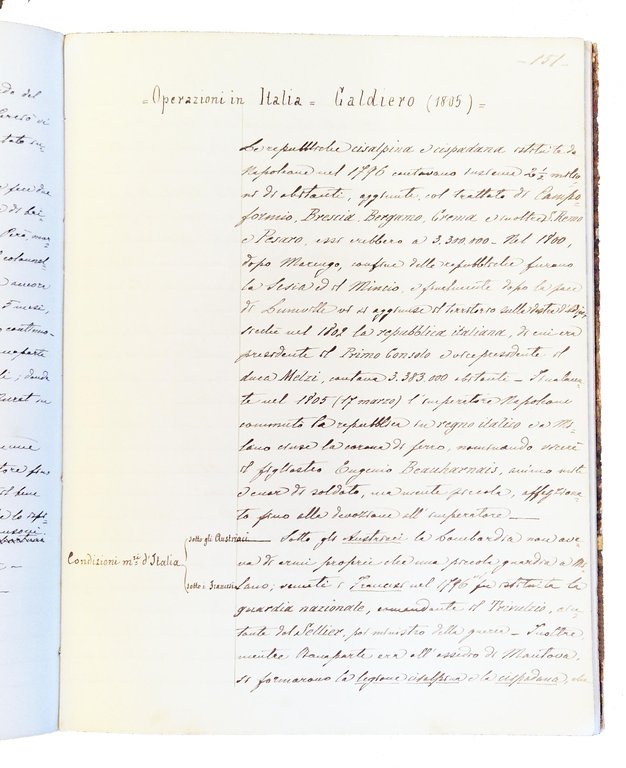 - 151 -
= Operazioni in Italia = Caldiero (1805) =
Le repubbliche cisalpina e cispadana istituite da
Napoleone nel 1796 contavano insieme 2 1/2 milio
ni di abitanti, aggiunte col trattato di Campo
formio, Brescia, Bergamo, Crema e inoltre
e Pesaro, essi crebbero a 3,300.000 - Nel 1800,
dopo Marengo, confine delle repubbliche furono
la Sesia ed il Mincio, e finalmente dopo la pace
di Luneville vi si aggiunse il territorio sulla destra d'Adige,
sicché nel 1802 la repubblica italiana, di cui era
presidente il Primo Console e vice presidente il
duca Melzi, contava 3.383.000 abitanti - Finalmen
te nel 1805 (17 marzo) l'imperatore Napoleone
commutò la repubblica in regno italico e a Mi
lano cinse la corona di ferro, nominando viceré
il figliastro Eugenio Beauharnais, animo
e cuor di soldato, ma mente piccola, affeziona
to fino alla devozione all'imperatore —
Condizioni m.re d'Italia
sotto gli Austriaci — Sotto gli Austriaci la Lombardia non ave
va di armi proprie che una piccola guardia a Mi
sotto i Francesi lano; venuti i Francesi nel 1796 fu istituita la
guardia nazionale, comandante il Trivulzio, aiu
tante dal Sellier, poi ministro della guerra - Inoltre
mentre Bonaparte era all'assedio di Mantova,
si formarono la legione cisalpina e la cispadana, che
do del
fece due
ancora
5 mesi,
continuo
naparte
ti; donde
urat in
tore fino